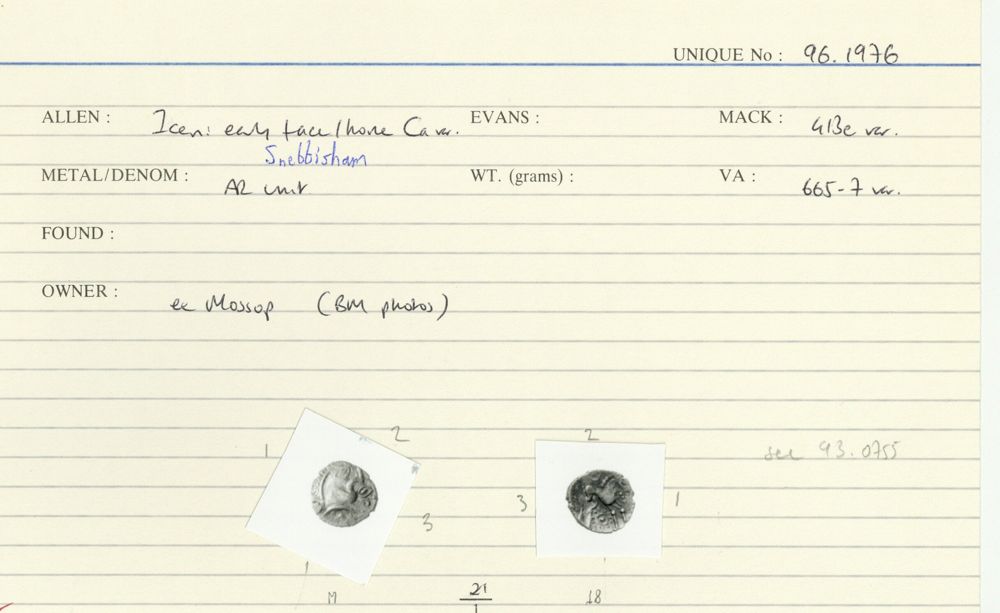 UNIQUE No : 96.1976
ALLEN : Iceni early face/horse Ca var. EVANS : MACK : 413e var.
Snettisham
METAL/DENOM : AR unit WT. (grams) : VA : 665-7 var.
FOUND :
OWNER : ex Mossop (BM photos)
2 2
1 see 93.0755
3 3 1
M 21 18
1